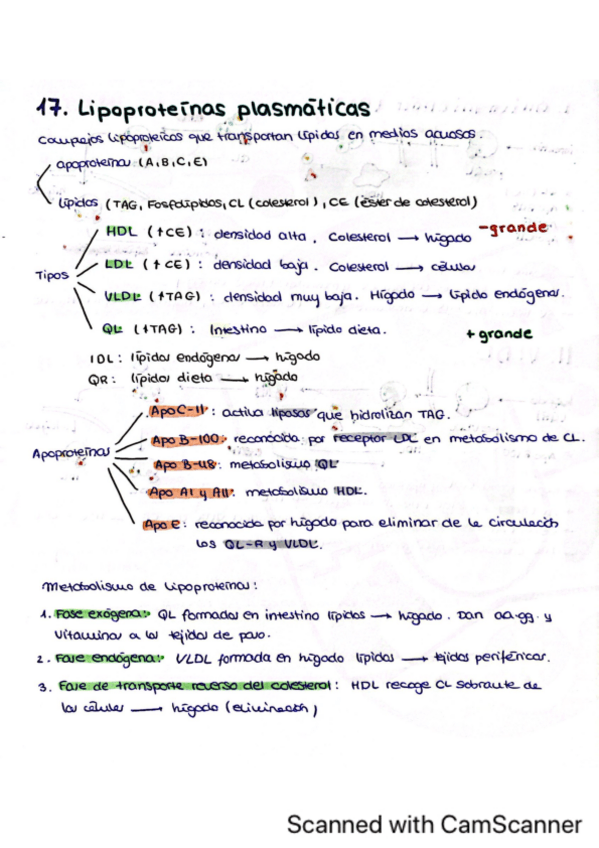 17. Lipoproteínas plasmáticas
Complejos lipoproteicos que transportan lípidos en medios acuosos.
apoproteínas (A, B, C, E)
Lípidos (TAG, Fosfolípidos, CL (colesterol), CE (éster de colesterol)
HDL (↑CE) : densidad alta. Colesterol → hígado
-grande
Tipos
LDL (↑CE) : densidad baja. Colesterol → células
VLDL (↑TAG) : densidad muy baja. Hígado → lípido endógenas.
QL (↑TAG) : Intestino → lípido dieta.
+grande
IDL : lípidos endógenas → hígado
QR : lípidos dieta → hígado
Apoproteínas
Apo C-II : activa lipasas que hidrolizan TAG.
Apo B-100 : reconocida por receptor LDL en metabolismo de CL.
Apo B-48 : metabolismo QL
Apo AI y AII : metabolismo HDL.
Apo E : reconocida por hígado para eliminar de la circulación
los QL-R y VLDL.
Metabolismo de Lipoproteínas :
1. Fase exógena : QL formados en intestino lípidos → hígado. Dan aa.gg y
vitaminas a los tejidos de paso.
2. Fase endógena : VLDL formada en hígado lípidos → tejidos periféricos.
3. Fase de transporte reverso del colesterol : HDL recoge CL sobrante de
las células → hígado (eliminación)
Scanned with CamScanner